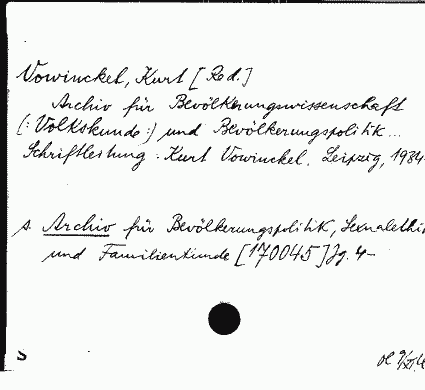 Vowinckel, Kurt [Red.]
Archiv für Bevölkerungswissenschaft
(: Volkskunde :) und Bevölkerungspolitik...
Schriftleitung: Kurt Vowinckel. Leipzig, 1934-
s. Archiv für Bevölkerungspolitik, Sexualethik
und Familienkunde [170045] Jg. 4-
S